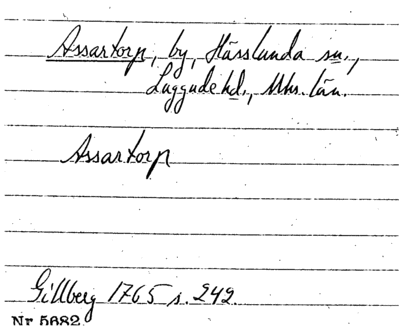 Assartorp, by, Hässlunda sn.,
Luggude hd., Mhs. län.
Assartorp
Gillberg 1765 s. 242.
Nr 5682